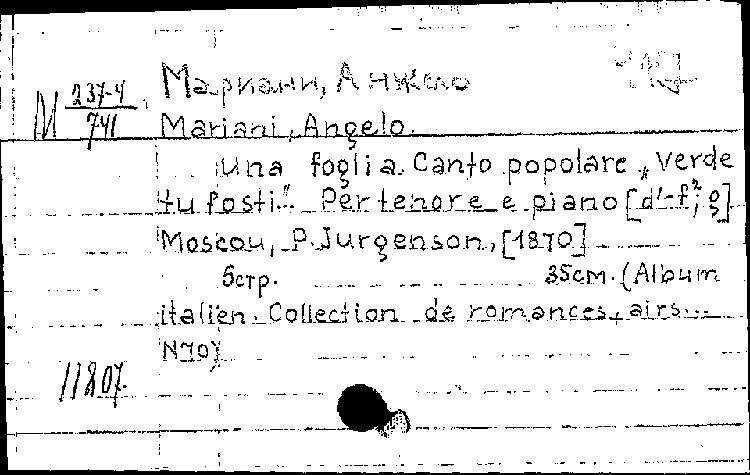 Мариани, Анжело
М 237-4/741
Mariani, Angelo.
Una foglia. Canto popolare „Verde
tu fosti." Per tenore e piano [d'-f², g]
Moscou, P. Jurgenson, [1870]
5стр. 35см. (Album
italien. Collection de romances, airs...
N70)
11807.